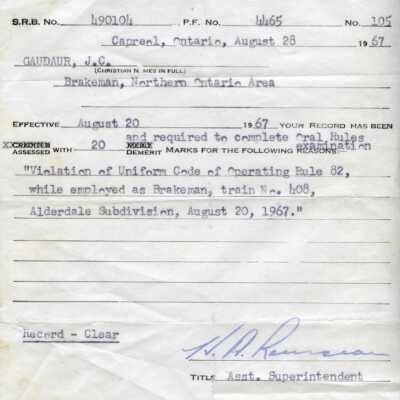 S.R.B. No. 490104 P.F. No. 4465 No. 105
Capreol, Ontario, August 28 1967
GAUDAUR, J.C.
(CHRISTIAN NAMES IN FULL)
Brakeman, Northern Ontario Area
EFFECTIVE August 20 1967 YOUR RECORD HAS BEEN
and required to complete Oral Rules
examination
CREDITED
ASSESSED WITH 20 MERIT
DEMERIT MARKS FOR THE FOLLOWING REASONS:
"Violation of Uniform Code of Operating Rule 82,
while employed as Brakeman, train No. 408,
Alderdale Subdivision, August 20, 1967."
Record - Clear
TITLE Asst. Superintendent